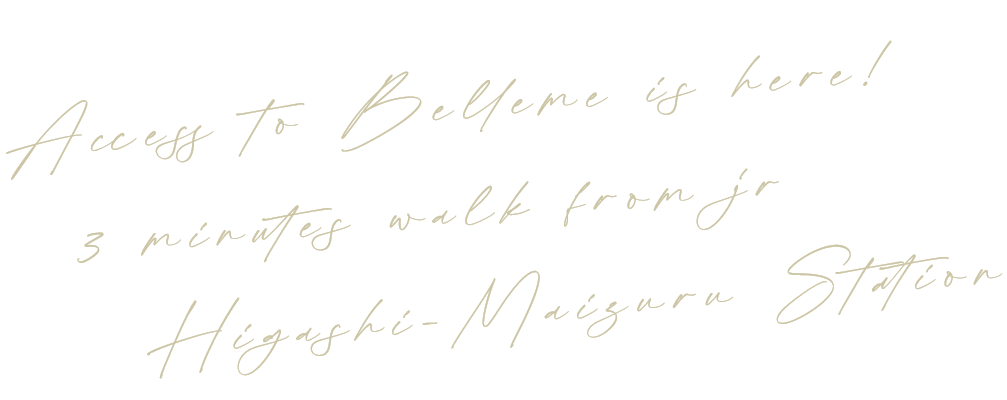 Access to Belleme is here!
3 minutes walk from jr
Higashi-Maizuru Station